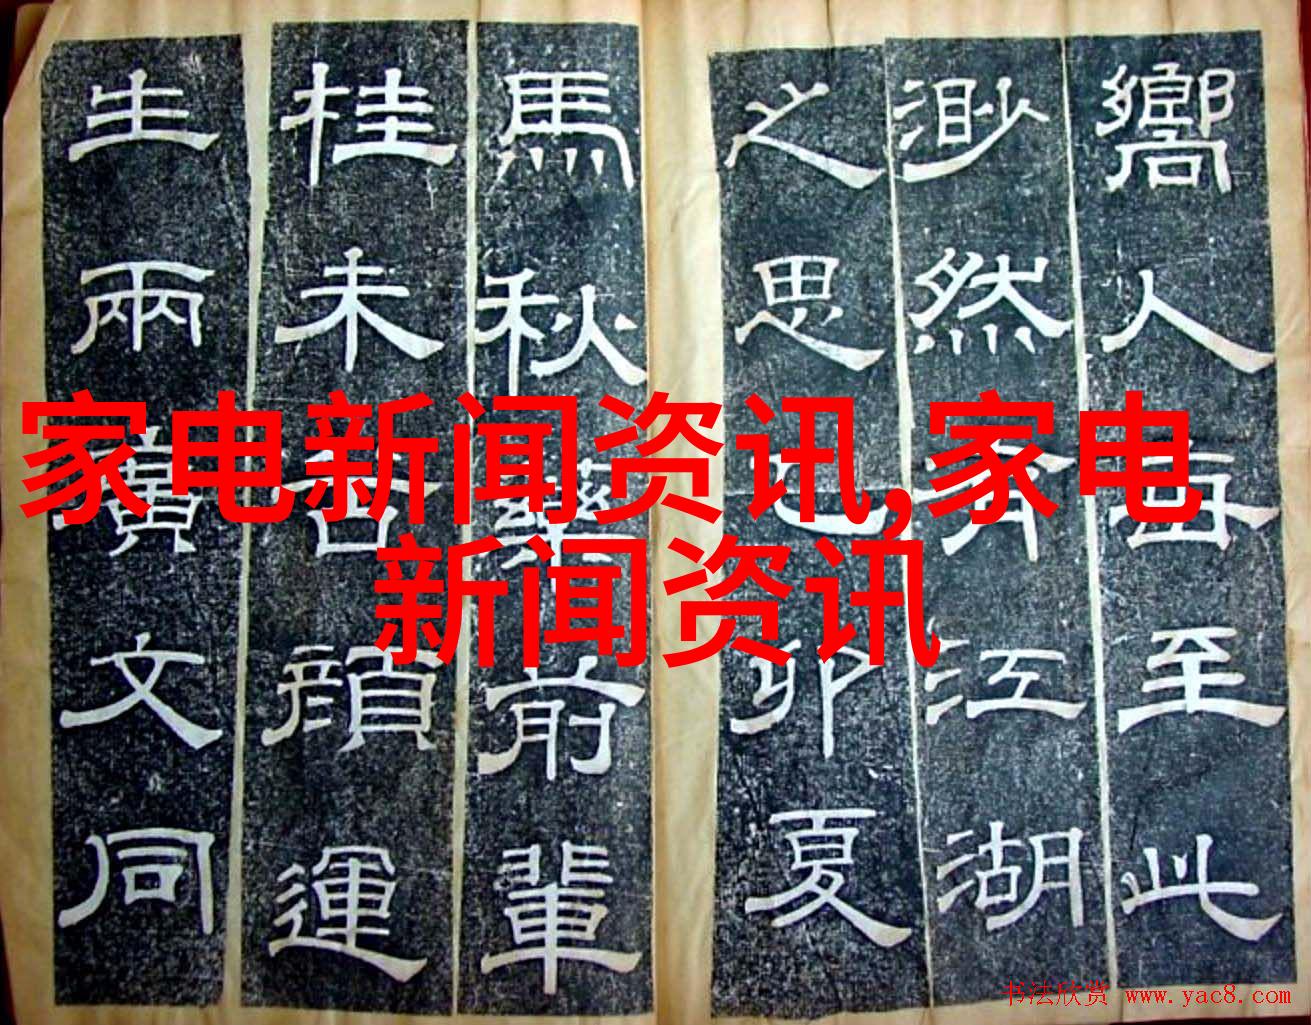 嚮人每至此
渺然有江湖
之思己卯夏
馬秋藥前輩
桂未谷顏運
生兩廣文同
家电新闻资讯,家电
新闻资讯
书法欣赏 www.yac8.com